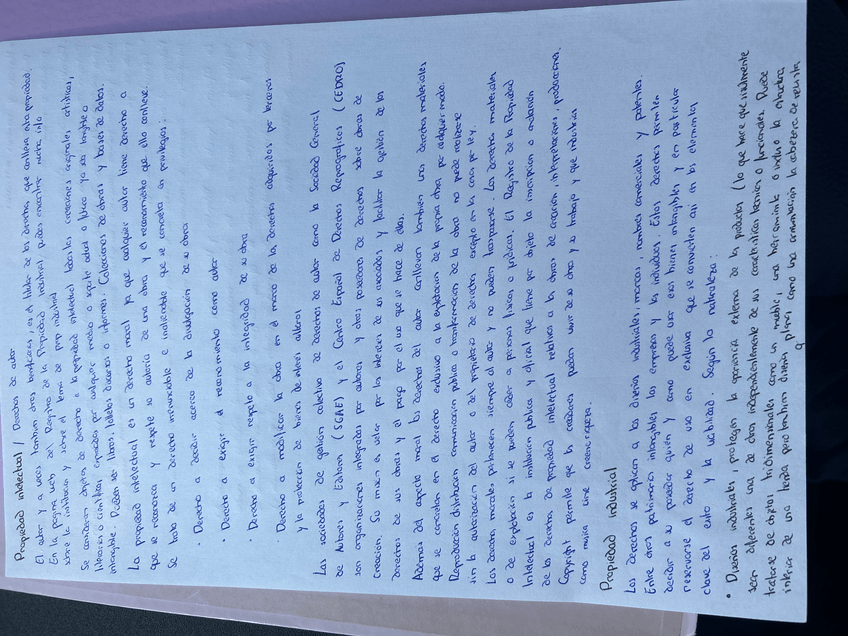 Propiedad intelectual / Derechos de autor
El autor y a veces también otros beneficiarios, es el titular de los derechos que conlleva esta propiedad.
En la página web del Registro de la Propiedad Industrial puedes encontrar mucha info
sobre la institución y sobre el tema de prop industrial
Se consideran objetos de derecho a la propiedad intelectual todas las creaciones originales artísticas,
literarias o científicas expresadas por cualquier medio o soporte actual o futuro ya sea tangible o
intangible. Pueden ser: libros, folletos discursos o informes. Colecciones de obras y bases de datos.
La propiedad intelectual es un derecho moral por lo que cualquier autor tiene derecho a
que se reconozca y respete su autoría de una obra y el reconocimiento que ello conlleve.
Se trata de un derecho irrenunciable e inalienable que se concreta en privilegios:
· Derecho a decidir acerca de la divulgación de su obra
· Derecho a exigir el reconocimiento como autor
· Derecho a exigir respeto a la integridad de su obra
· Derecho a modificar la obra en el marco de los derechos adquiridos por terceros
y la protección de bienes de interés
Las sociedades de gestión colectiva de derechos de autor como la Sociedad General
de Autores y Editores (SGAE) y el Centro Español de Derechos Reprográficos (CEDRO)
son organizaciones integradas por autores y otros poseedores de derechos sobre obras de
creación. Su misión es velar por los intereses de sus asociados y facilitar la gestión de los
derechos de sus obras y el pago por el uso que se hace de ellas.
Además del aspecto moral los derechos del autor conllevan también unos derechos materiales
que se concretan en el derecho exclusivo a la explotación de la propia obra por cualquier modo.
Reproducción distribución comunicación pública o transformación de la obra no puede realizarse
sin la autorización del autor o del propietario de derechos excepto en los casos por ley.
Los derechos morales pertenecen siempre al autor y no pueden traspasarse. Los derechos materiales
o de explotación si se pueden ceder a personas físicas o jurídicas. El Registro de la Propiedad
Intelectual es la institución pública y oficial que tiene por objeto la inscripción o anotación
de los derechos de propiedad intelectual relativos a las obras de creación, interpretaciones, producciones.
Copyright permite que los creadores puedan vivir de su obra y su trabajo y que industrias
como música cine creen riqueza.
Propiedad industrial
Los derechos se aplican a los diseños industriales, marcas, nombres comerciales y patentes.
Entre otros patrimonios intangibles las empresas y los individuos. Estos derechos permiten
decidir a su poseedor quién y como puede usar esos bienes intangibles y en particular
reservarse el derecho de uso en exclusiva que se convierten así en los elementos
clave del éxito y la visibilidad. Según la naturaleza:
· Diseños industriales: protegen la apariencia externa de los productos (lo que hace que visualmente
sean diferentes uno de otro independientemente de sus características técnicas o funcionales. Puede
tratarse de objetos tridimensionales como un mueble, una herramienta o incluso la
interior de una tienda pero también diseños planos como una ornamentación la cabecera de revista